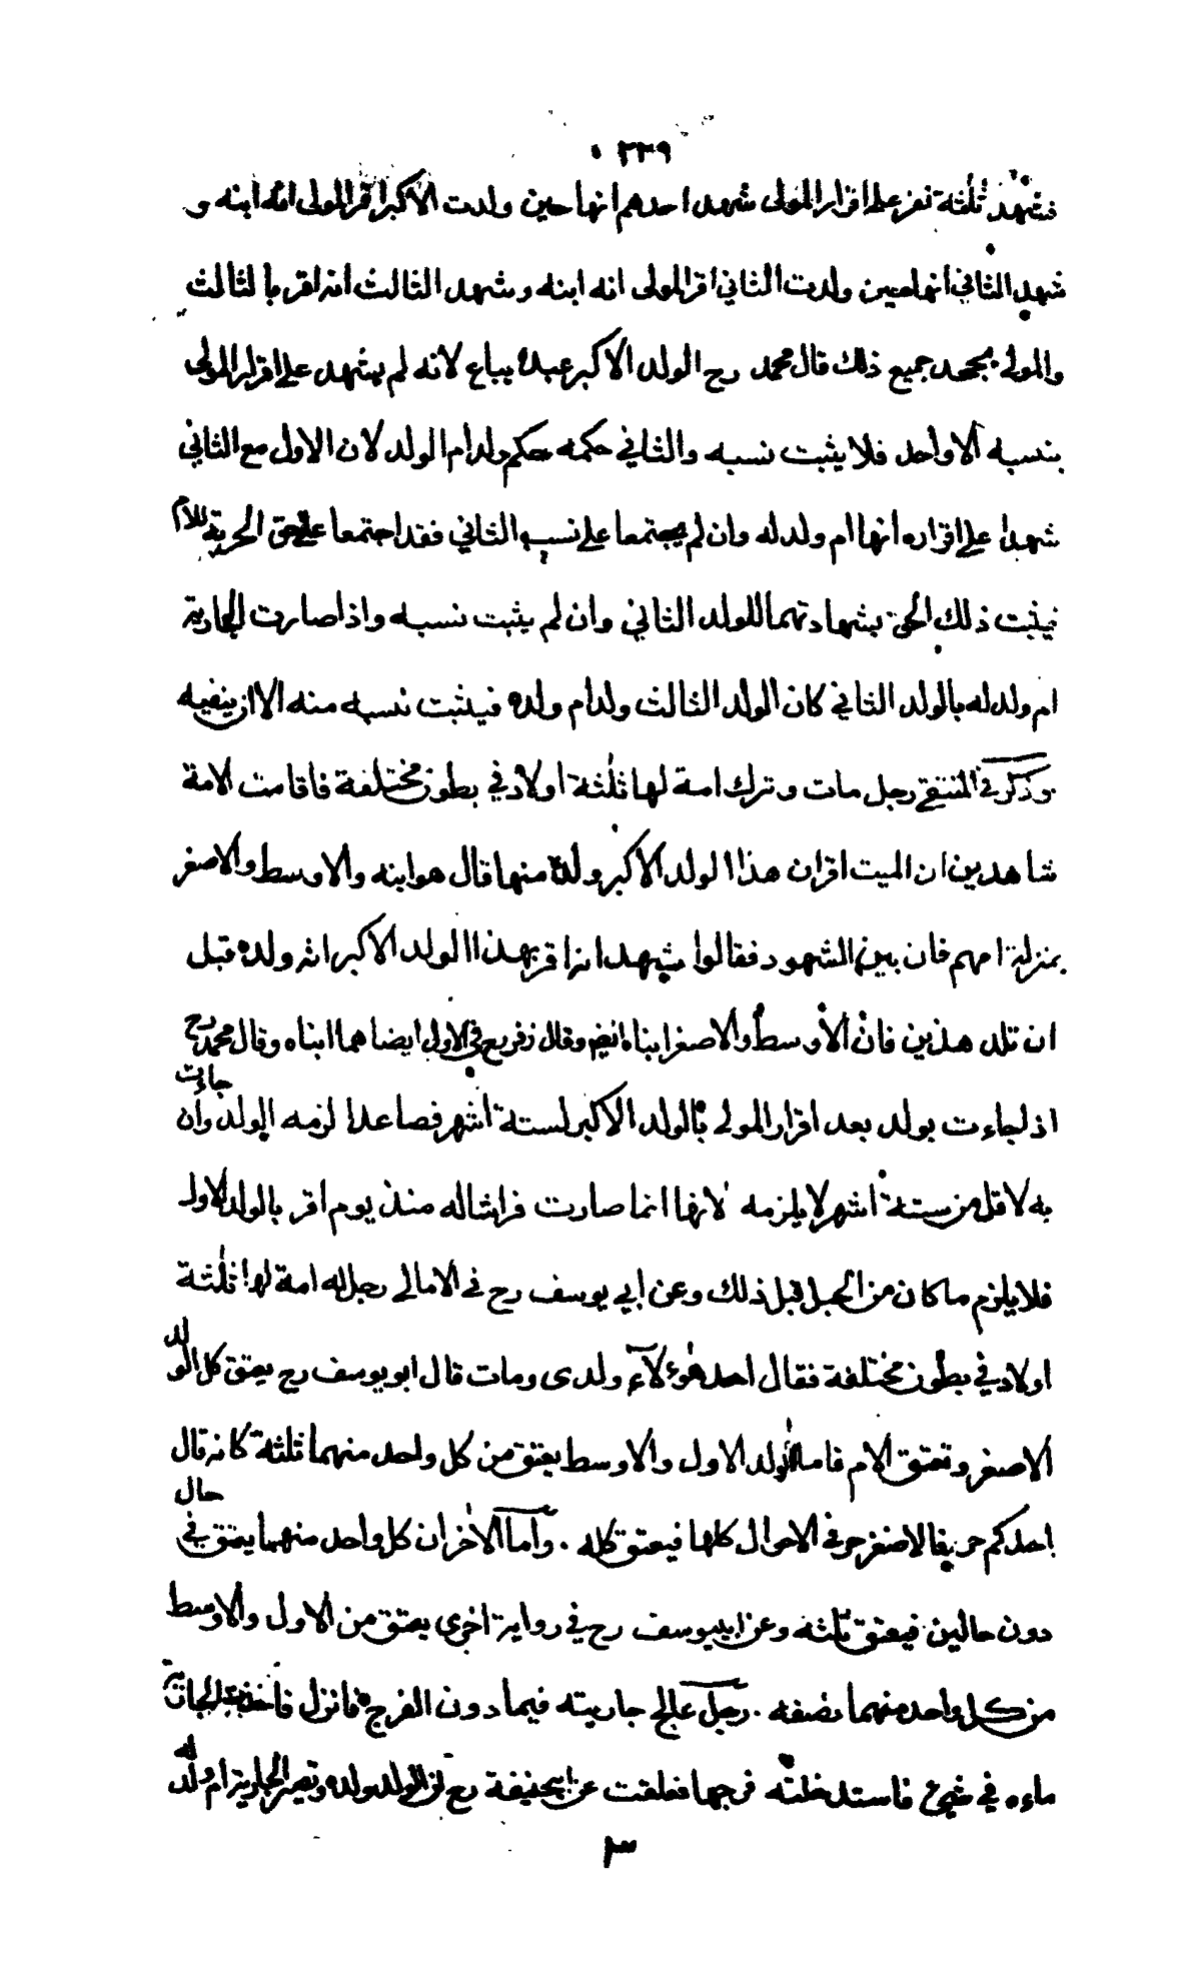 ٣٣٩
فشهد ثلثة نفر على اقرار المولى شهد احدهم انها حين ولدت الاكبر اقر المولى انه ابنه و
شهد الثاني انها حين ولدت الثاني اقر المولى انه ابنه وشهد الثالث انه اقر بالثالث
والمولى يجحد جميع ذلك قال محمد رح الولد الاكبر عبده يباع لانه لم يشهد على اقرار المولى
بنسبه الا واحد فلا يثبت نسبه والثاني حكمه حكم ولد ام الولد لان الاول مع الثاني
شهدا على اقراره انها ام ولد له وان لم يجتمعا على نسب الثاني فقد اجتمعا على حق الحرية للام
فيثبت ذلك الحق بشهادتهما للولد الثاني وان لم يثبت نسبه واذا صارت الجارية
ام ولد له بالولد الثاني كان الولد الثالث ولد ام ولده فيثبت نسبه منه الا ان ينفيه
وذكر في المنتقى رجل مات وترك امة لها ثلثة اولاد في بطون مختلفة فاقامت الامة
شاهدين ان الميت اقر ان هذا الولد الاكبر ولده منها قال هو ابنه والاوسط والاصغر
بمنزلة امهم فان بين الشهود فقالوا شهد انه اقر بهذا الولد الاكبر انه ولده قبل
ان تلد هذين فان الاوسط والاصغر ابناه ايضا وقال زفر رح في الاول ايضا هما ابناه وقال محمد رح
اذا جاءت بولد بعد اقرار المولى بالولد الاكبر لستة اشهر فصاعدا لزمه الولد وان جاءت
به لاقل من ستة اشهر لا يلزمه لانها انما صارت فراشا له منذ يوم اقر بالولد الاول
فلا يلزم ما كان من الحبل قبل ذلك وعن ابي يوسف رح في الامالى رجل له امة لها ثلثة
اولاد في بطون مختلفة فقال احد هؤلاء ولدى ومات قال ابو يوسف رح يعتق كل الولد
الاصغر وتعتق الام فاما الولد الاول والاوسط يعتق من كل واحد منهما ثلثه كانه قال
احدكم حر فالاصغر حر في الاحوال كلها فيعتق كله . واما الاخران كل واحد منهما يعتق في حال
دون حالين فيعتق ثلثه وعن ابي يوسف رح في رواية اخرى يعتق من الاول والاوسط
من كل واحد منهما نصفه . رجل عالج جاريته فيما دون الفرج فانزل فاخذت الجارية
ماءه في شيئ فاستدخلته فرجها فعلقت عن ابي حنيفة رح ان الولد ولده وتصير الجارية ام ولد له